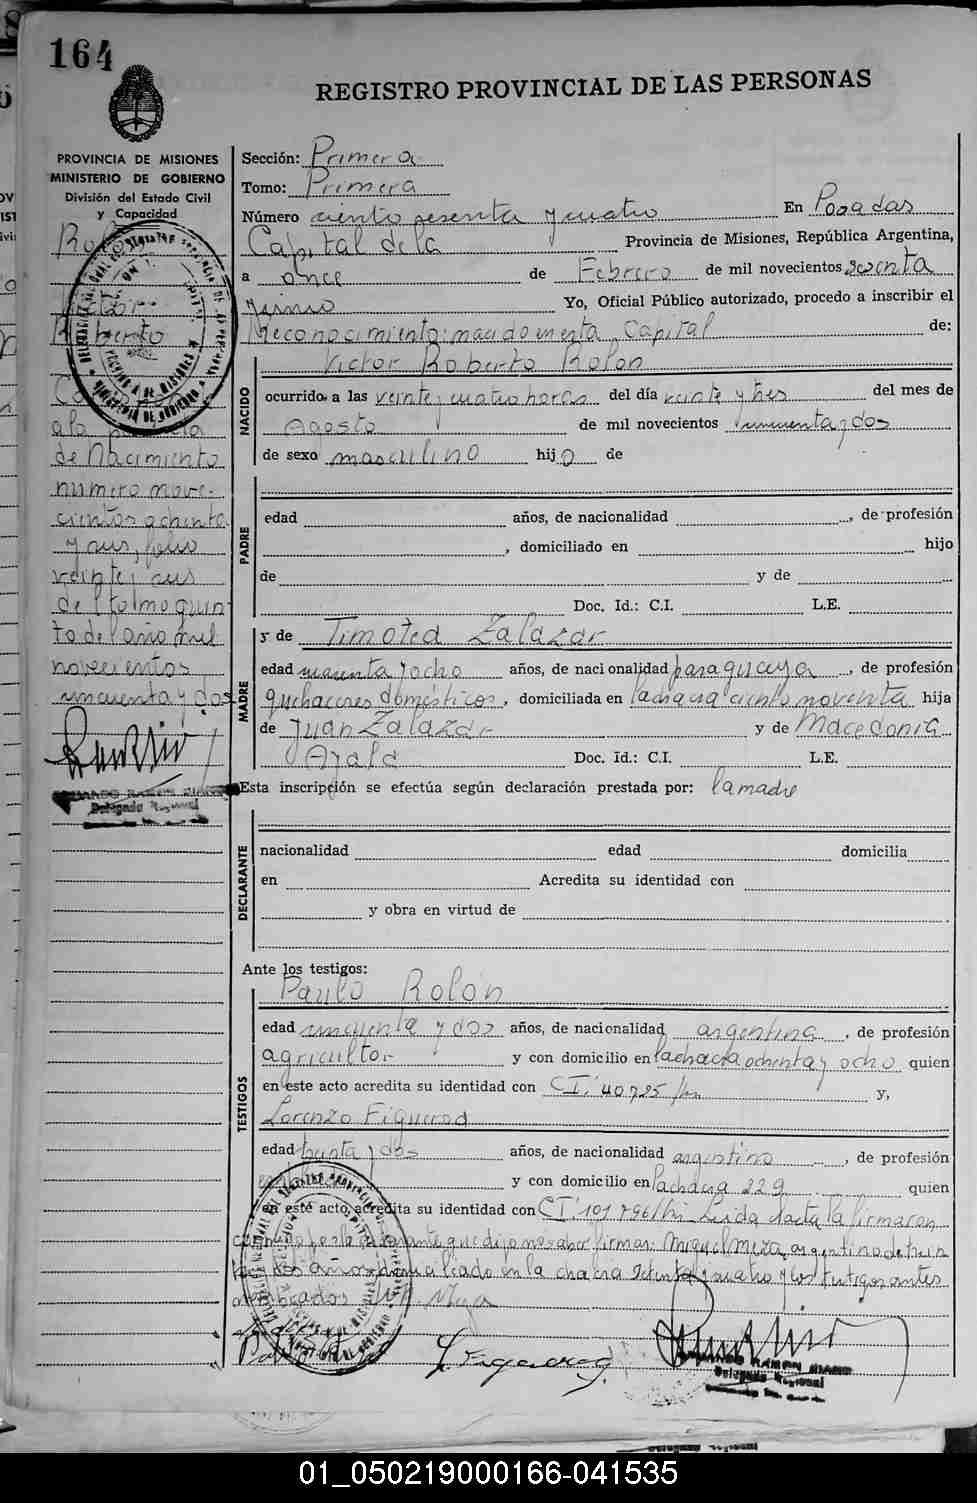 164
REGISTRO PROVINCIAL DE LAS PERSONAS
PROVINCIA DE MISIONES
MINISTERIO DE GOBIERNO
División del Estado Civil
y Capacidad
Rolón
Víctor
Roberto
a la
de Nacimiento
numero nove-
cientos ochenta
y seis, folio
veinte, seis
del tomo quin-
to del año mil
novecientos
cincuenta y dos
Delegado Regional
Sección: Primera
Tomo: Primera
Número ciento sesenta y cuatro En Posadas
Capital de la Provincia de Misiones, República Argentina,
a once de Febrero de mil novecientos sesenta
y Yo, Oficial Público autorizado, procedo a inscribir el
Reconocimiento: nacido en esta Capital de:
NACIDO
Victor Roberto Rolón
ocurrido a las veinte y cuatro horas del día veinte y tres del mes de
Agosto de mil novecientos cincuenta y dos
de sexo masculino hijo de
PADRE
edad años, de nacionalidad , de profesión
, domiciliado en hijo
de y de
Doc. Id.: C.I. L.E.
MADRE
y de Timotea Zalazar
edad cuarenta y ocho años, de nacionalidad paraguaya , de profesión
quehaceres domésticos , domiciliada en la chacra ciento noventa hija
de Juan Zalazar y de Macedonia
Ayala Doc. Id.: C.I. L.E.
Esta inscripción se efectúa según declaración prestada por: la madre
DECLARANTE
nacionalidad edad domicilia
en Acredita su identidad con
y obra en virtud de
Ante los testigos:
TESTIGOS
Paulo Rolón
edad cincuenta y dos años, de nacionalidad argentina , de profesión
agricultor y con domicilio en la chacra ochenta y ocho quien
en este acto acredita su identidad con C.I. 40725 y,
Lorenzo Figueroa
edad treinta y dos años, de nacionalidad argentino , de profesión
y con domicilio en la chacra 229 quien
en este acto acredita su identidad con C.I. 101796 Leida el acta la firmaron
conmigo por la declarante que dijo no saber firmar: Miguel Meza, argentino de trein
ta y dos años domiciliado en la chacra setenta y cuatro y los testigos antes
nombrados
L. Figueroa
Delegado Regional
01_050219000166-041535